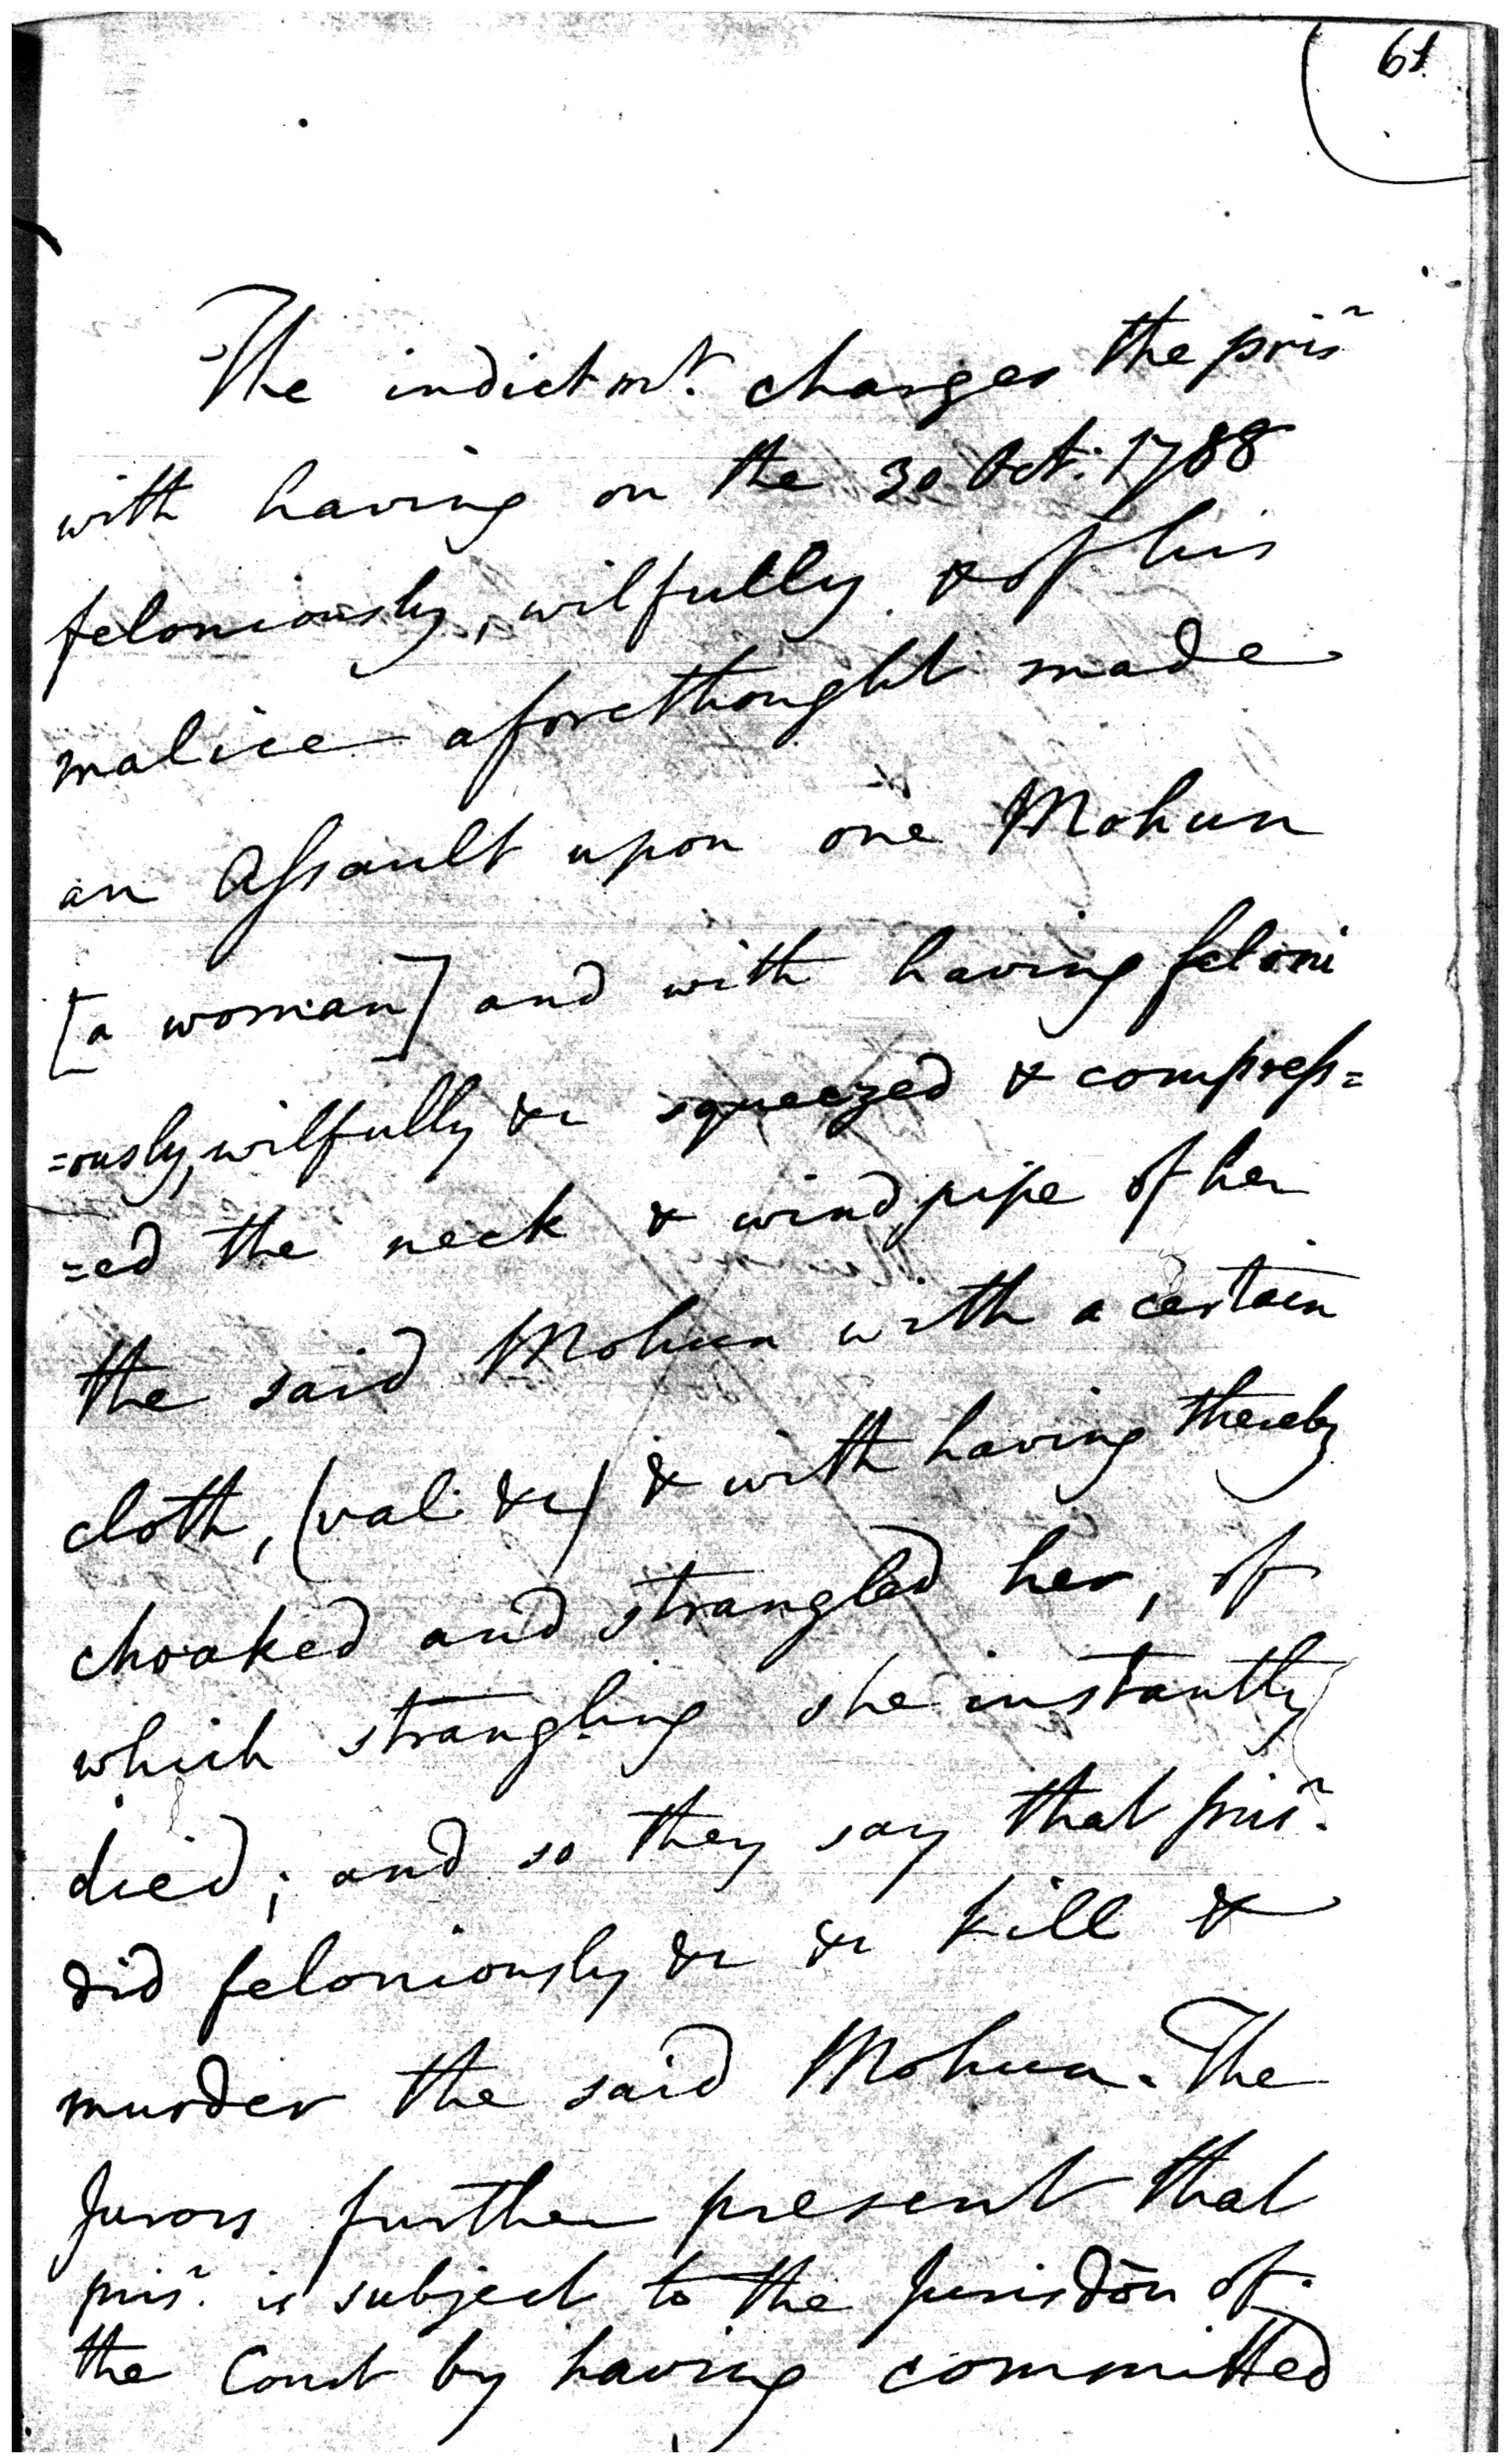 61.
The indictmt. charges the prisr
with having on the 30 Oct: 1788
feloniously, wilfully & of his
malice aforethought made
an Assault upon one Mohun
[a woman] and with having feloni
=ously, wilfully &c squeezed & compress=
=ed the neck & windpipe of her
the said Mohun with a certain
cloth, (val: &c) & with having thereby
choaked and strangled her, of
which strangling she instantly
died; and so they say that prisr.
did feloniously &c &c kill &
murder the said Mohun. The
Jurors further present that
prisr. is subject to the Jurisdōn of
the Court by having committed